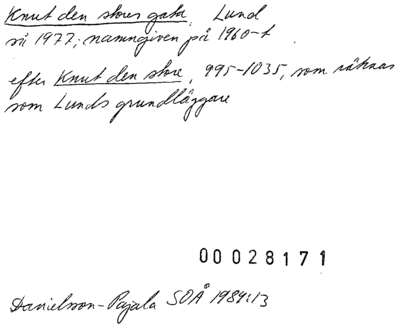 Knut den stores gata, Lund
så 1977; namngiven på 1960-t.
efter Knut den store, 995-1035, som räknas
som Lunds grundläggare
00028171
Danielsson-Pajala SOÅ 1984:13